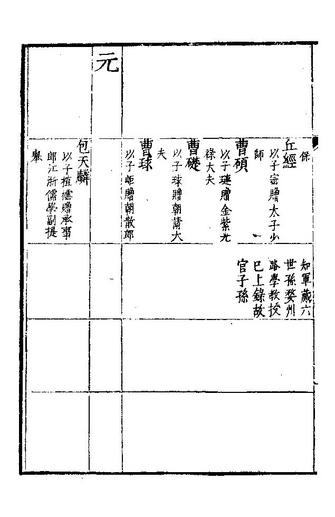 保
丘經
以子宻贈太子少
師
曹碩
以子璉贈金紫光
祿大夫
曹礎
以子球贈朝請大
夫
曹球
以子昛贈朝散郎
知軍葳六
世孫婺州
路學教授
已上錄故
官子孫
元
包天麟
以子
贈承事
郎江浙儒學副提
舉